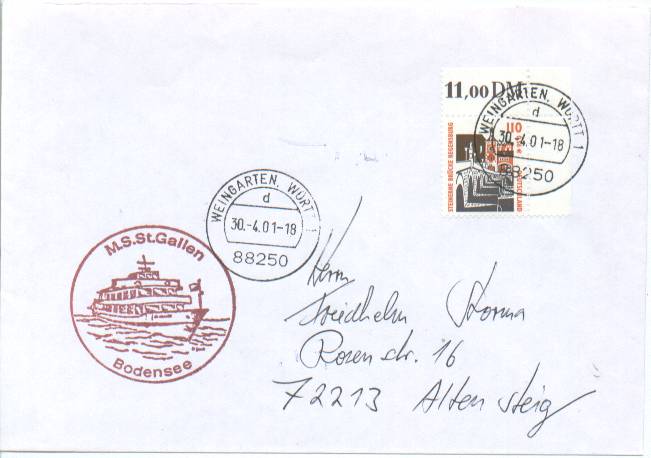 11,00 DM
WEINGARTEN, WÜRTT 1
d
30.-4.01-18
88250
110
STEINERNE BRÜCKE REGENSBURG
DEUTSCHLAND
WEINGARTEN, WÜRTT 1
d
30.-4.01-18
88250
M.S.St.Gallen
Bodensee
Herrn
Friedhelm Storma
Rosenstr. 16
72213 Altensteig